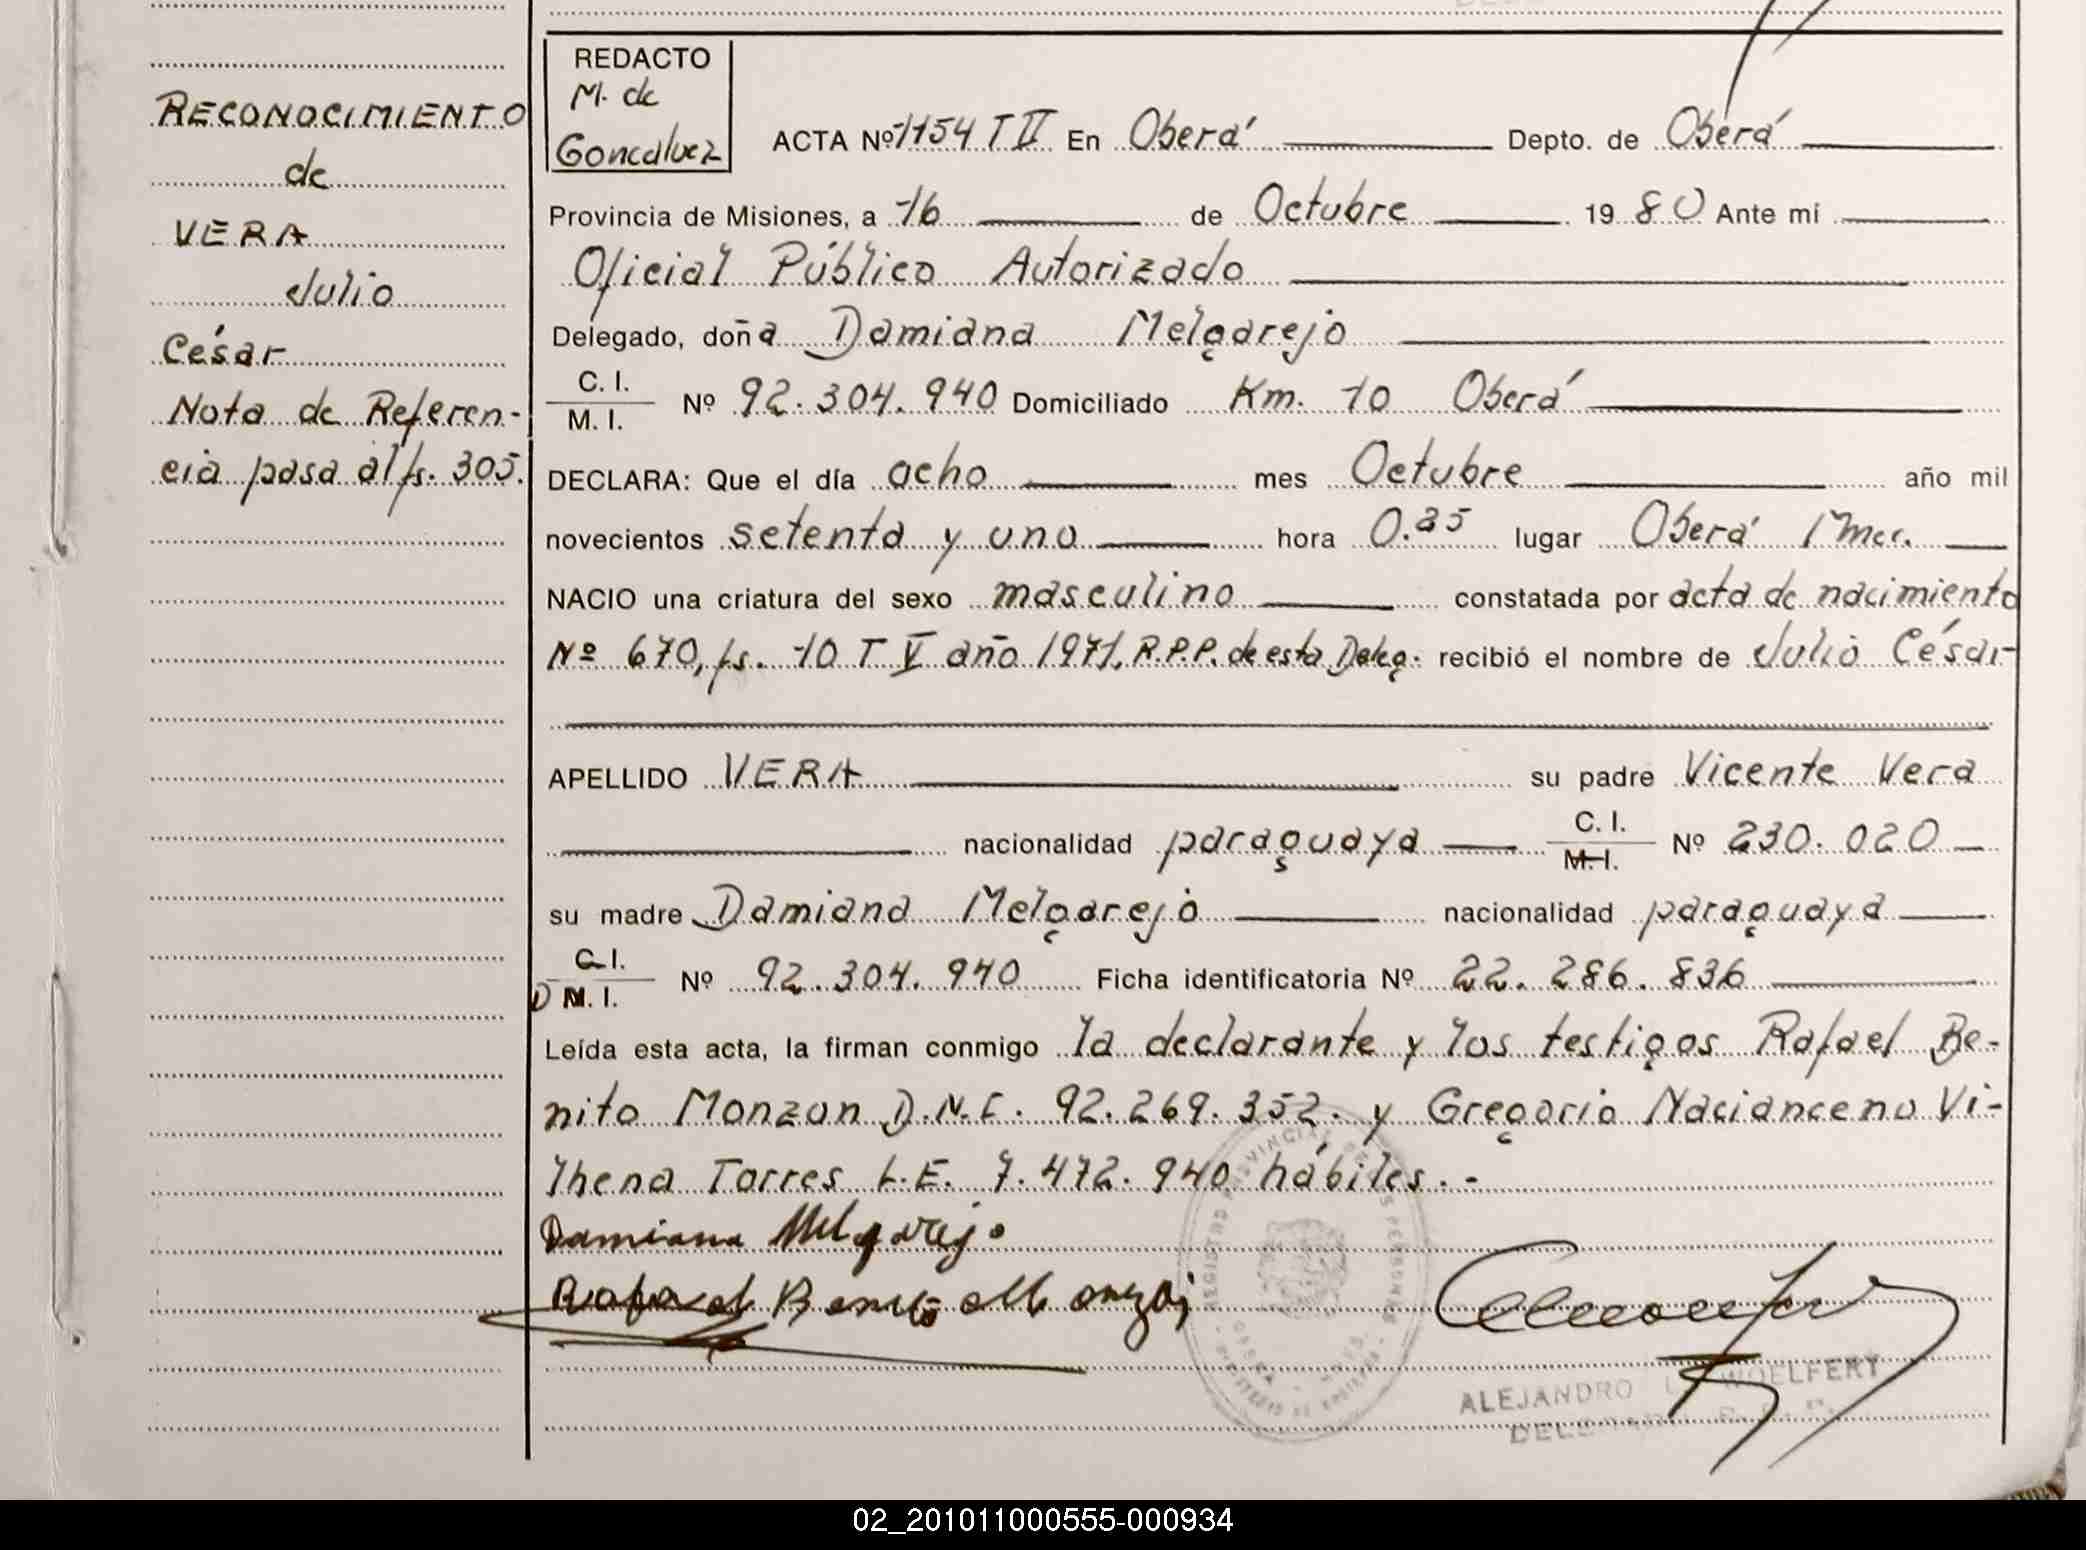 RECONOCIMIENTO
de
VERA
Julio
César
Nota de Referen-
cia pasa al fs. 305.
REDACTO
M. de
Goncalvez
ACTA Nº 1154 T II En Oberá Depto. de Oberá
Provincia de Misiones, a 16 de Octubre 1980 Ante mí
Oficial Público Autorizado
Delegado, doña Damiana Melgarejo
C. I.
M. I. Nº 92.304.940 Domiciliado Km. 10 Oberá
DECLARA: Que el día ocho mes Octubre año mil
novecientos setenta y uno hora 0.35 lugar Oberá 1 Mcr.
NACIO una criatura del sexo masculino constatada por acta de nacimiento
Nº 670, fs. 10 T V año 1971, R.P.P. de esta Deleg. recibió el nombre de Julio César
APELLIDO VERA su padre Vicente Vera
nacionalidad paraguaya C. I.
M. I. Nº 230.020
su madre Damiana Melgarejo nacionalidad paraguaya
C. I.
D M. I. Nº 92.304.940 Ficha identificatoria Nº 22.286.836
Leída esta acta, la firman conmigo la declarante y los testigos Rafael Be-
nito Monzon D.N.I. 92.269.352. y Gregorio Nacianceno Vi-
lhena Torres L.E. 7.472.940 hábiles.-
Damiana Melgarejo
Rafael Benito Monzon
ALEJANDRO WOELFERT
02_201011000555-000934